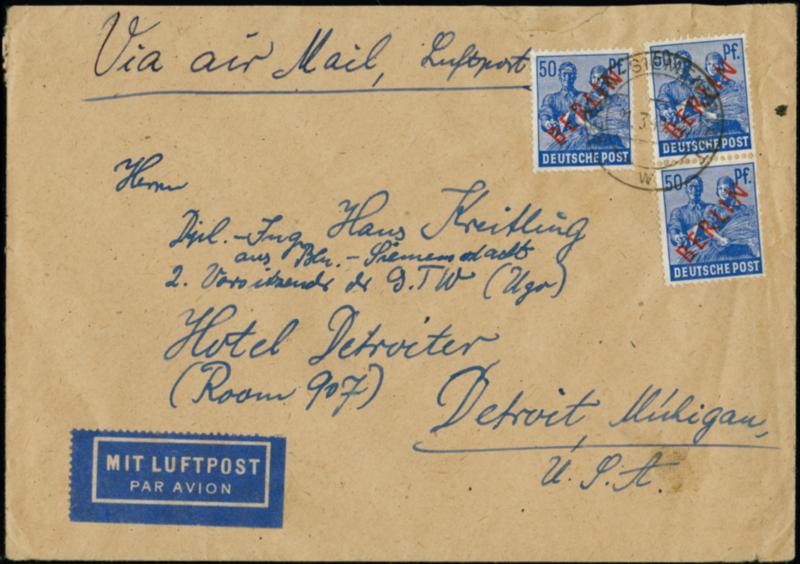 Via air Mail, Luftpost
50 Pf.
BERLIN
DEUTSCHE POST
50 Pf.
BERLIN
DEUTSCHE POST
50 Pf.
BERLIN
DEUTSCHE POST
Herrn
Dipl.-Ing. Hans Kreitling
aus Bln.-Siemensstadt
2. Vorsitzender der (Ugo)
Hotel Detroiter
(Room 907)
Detroit, Michigan,
U.S.A.
MIT LUFTPOST
PAR AVION